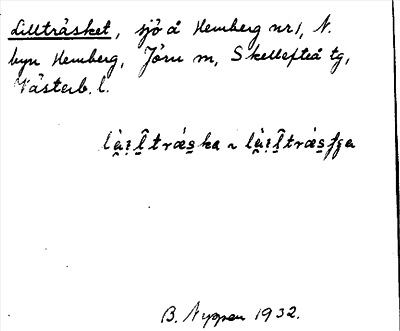 Lillträsket, sjö å Hemberg nr 1, N.
byn Hemberg, Jörn m, Skellefteå tg,
Västerb. l.
träska ~
B. Nyman 1932.